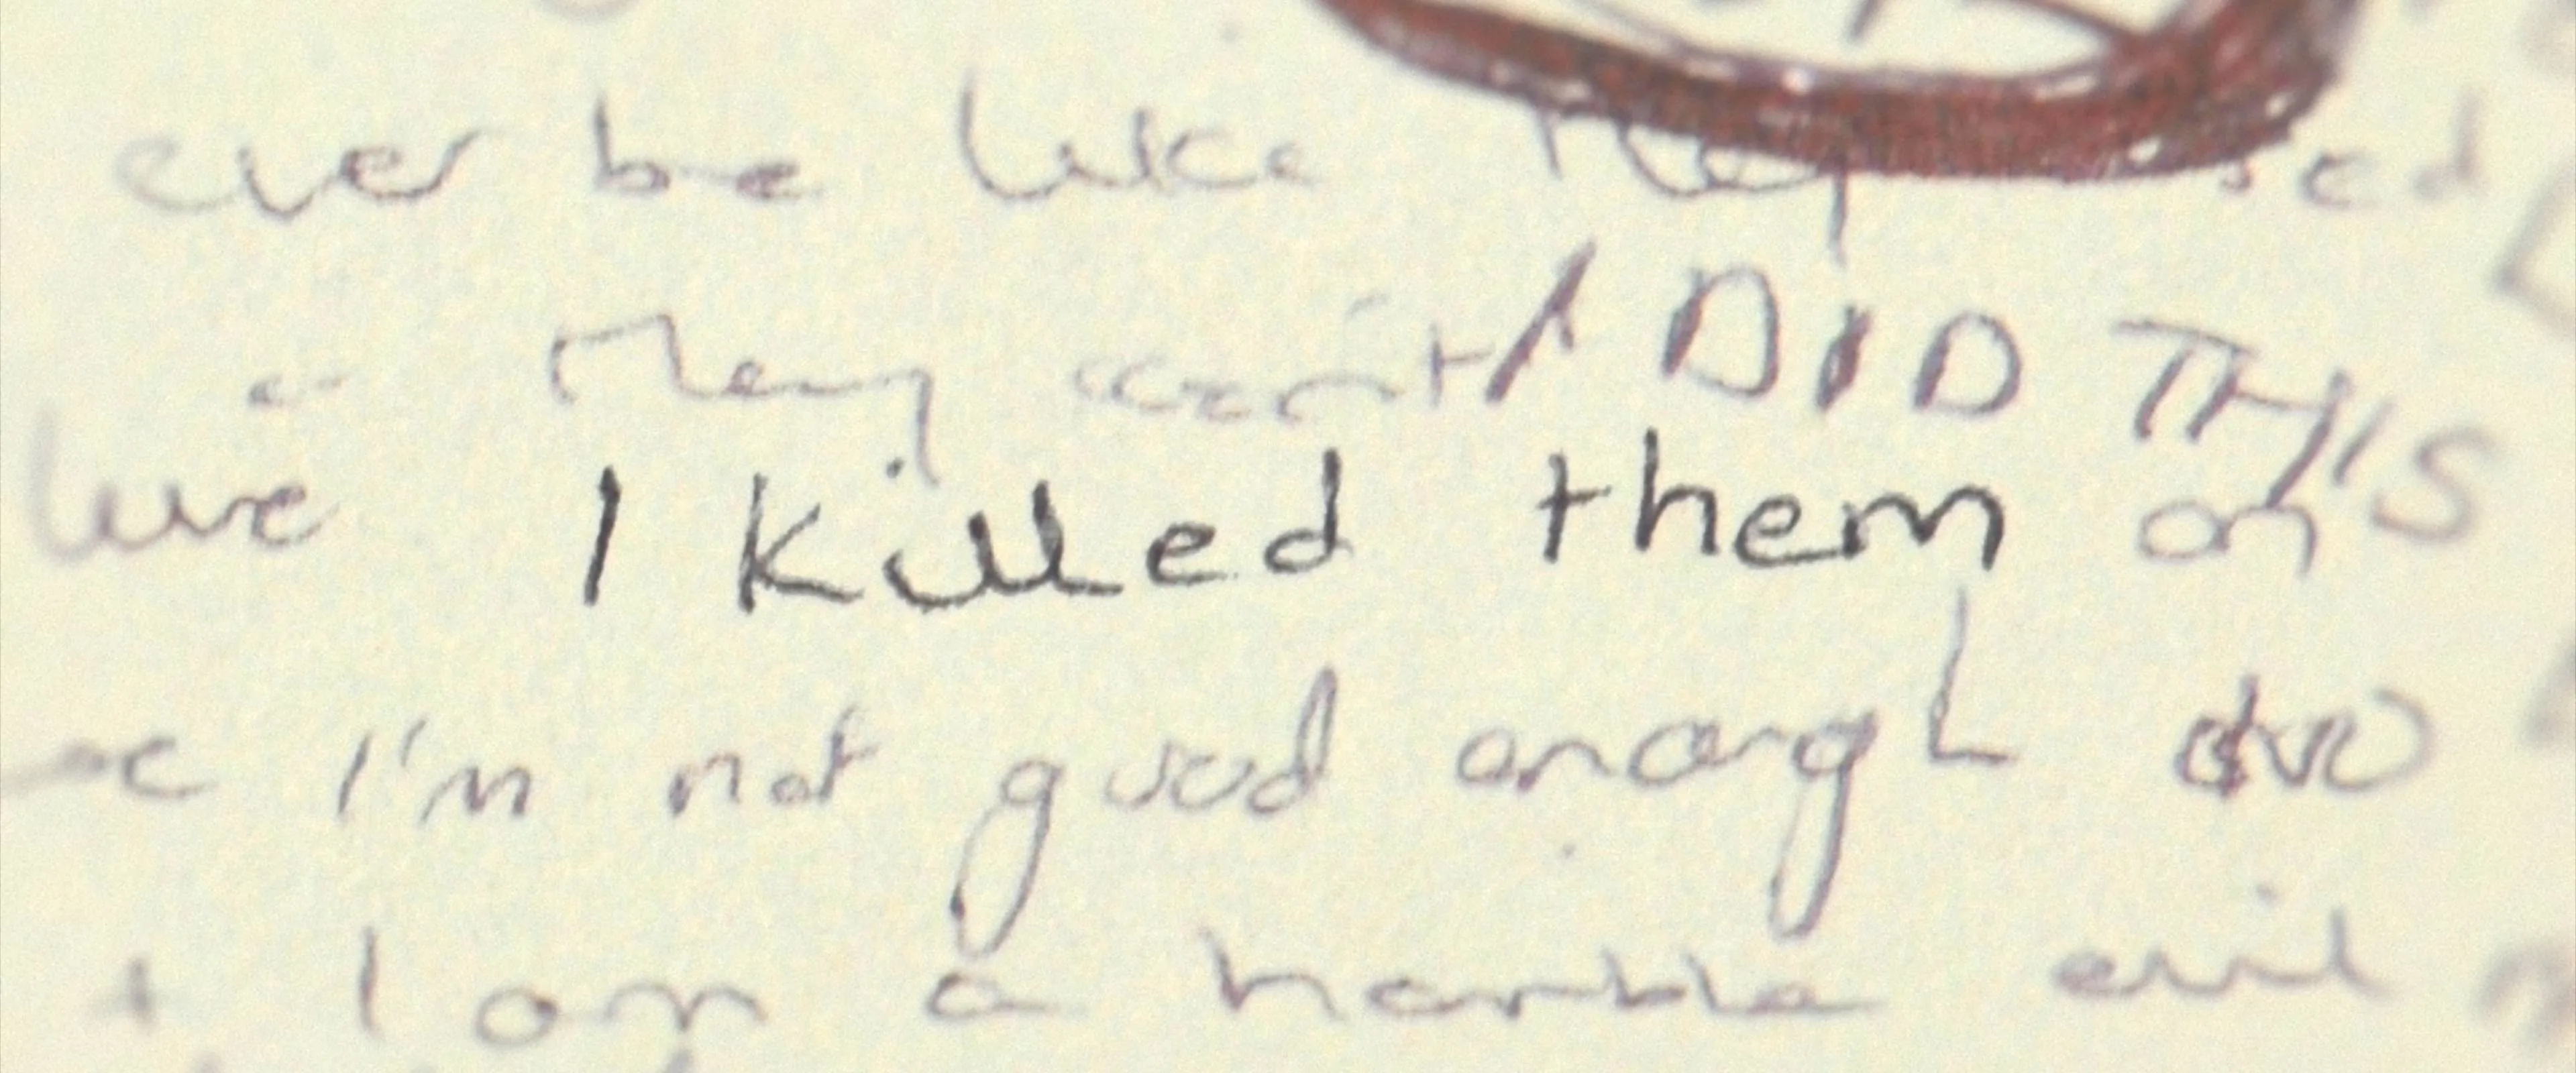 ever be like they used
they can't I DID THIS
I killed them on
I'm not good enough
I am a horrible evil